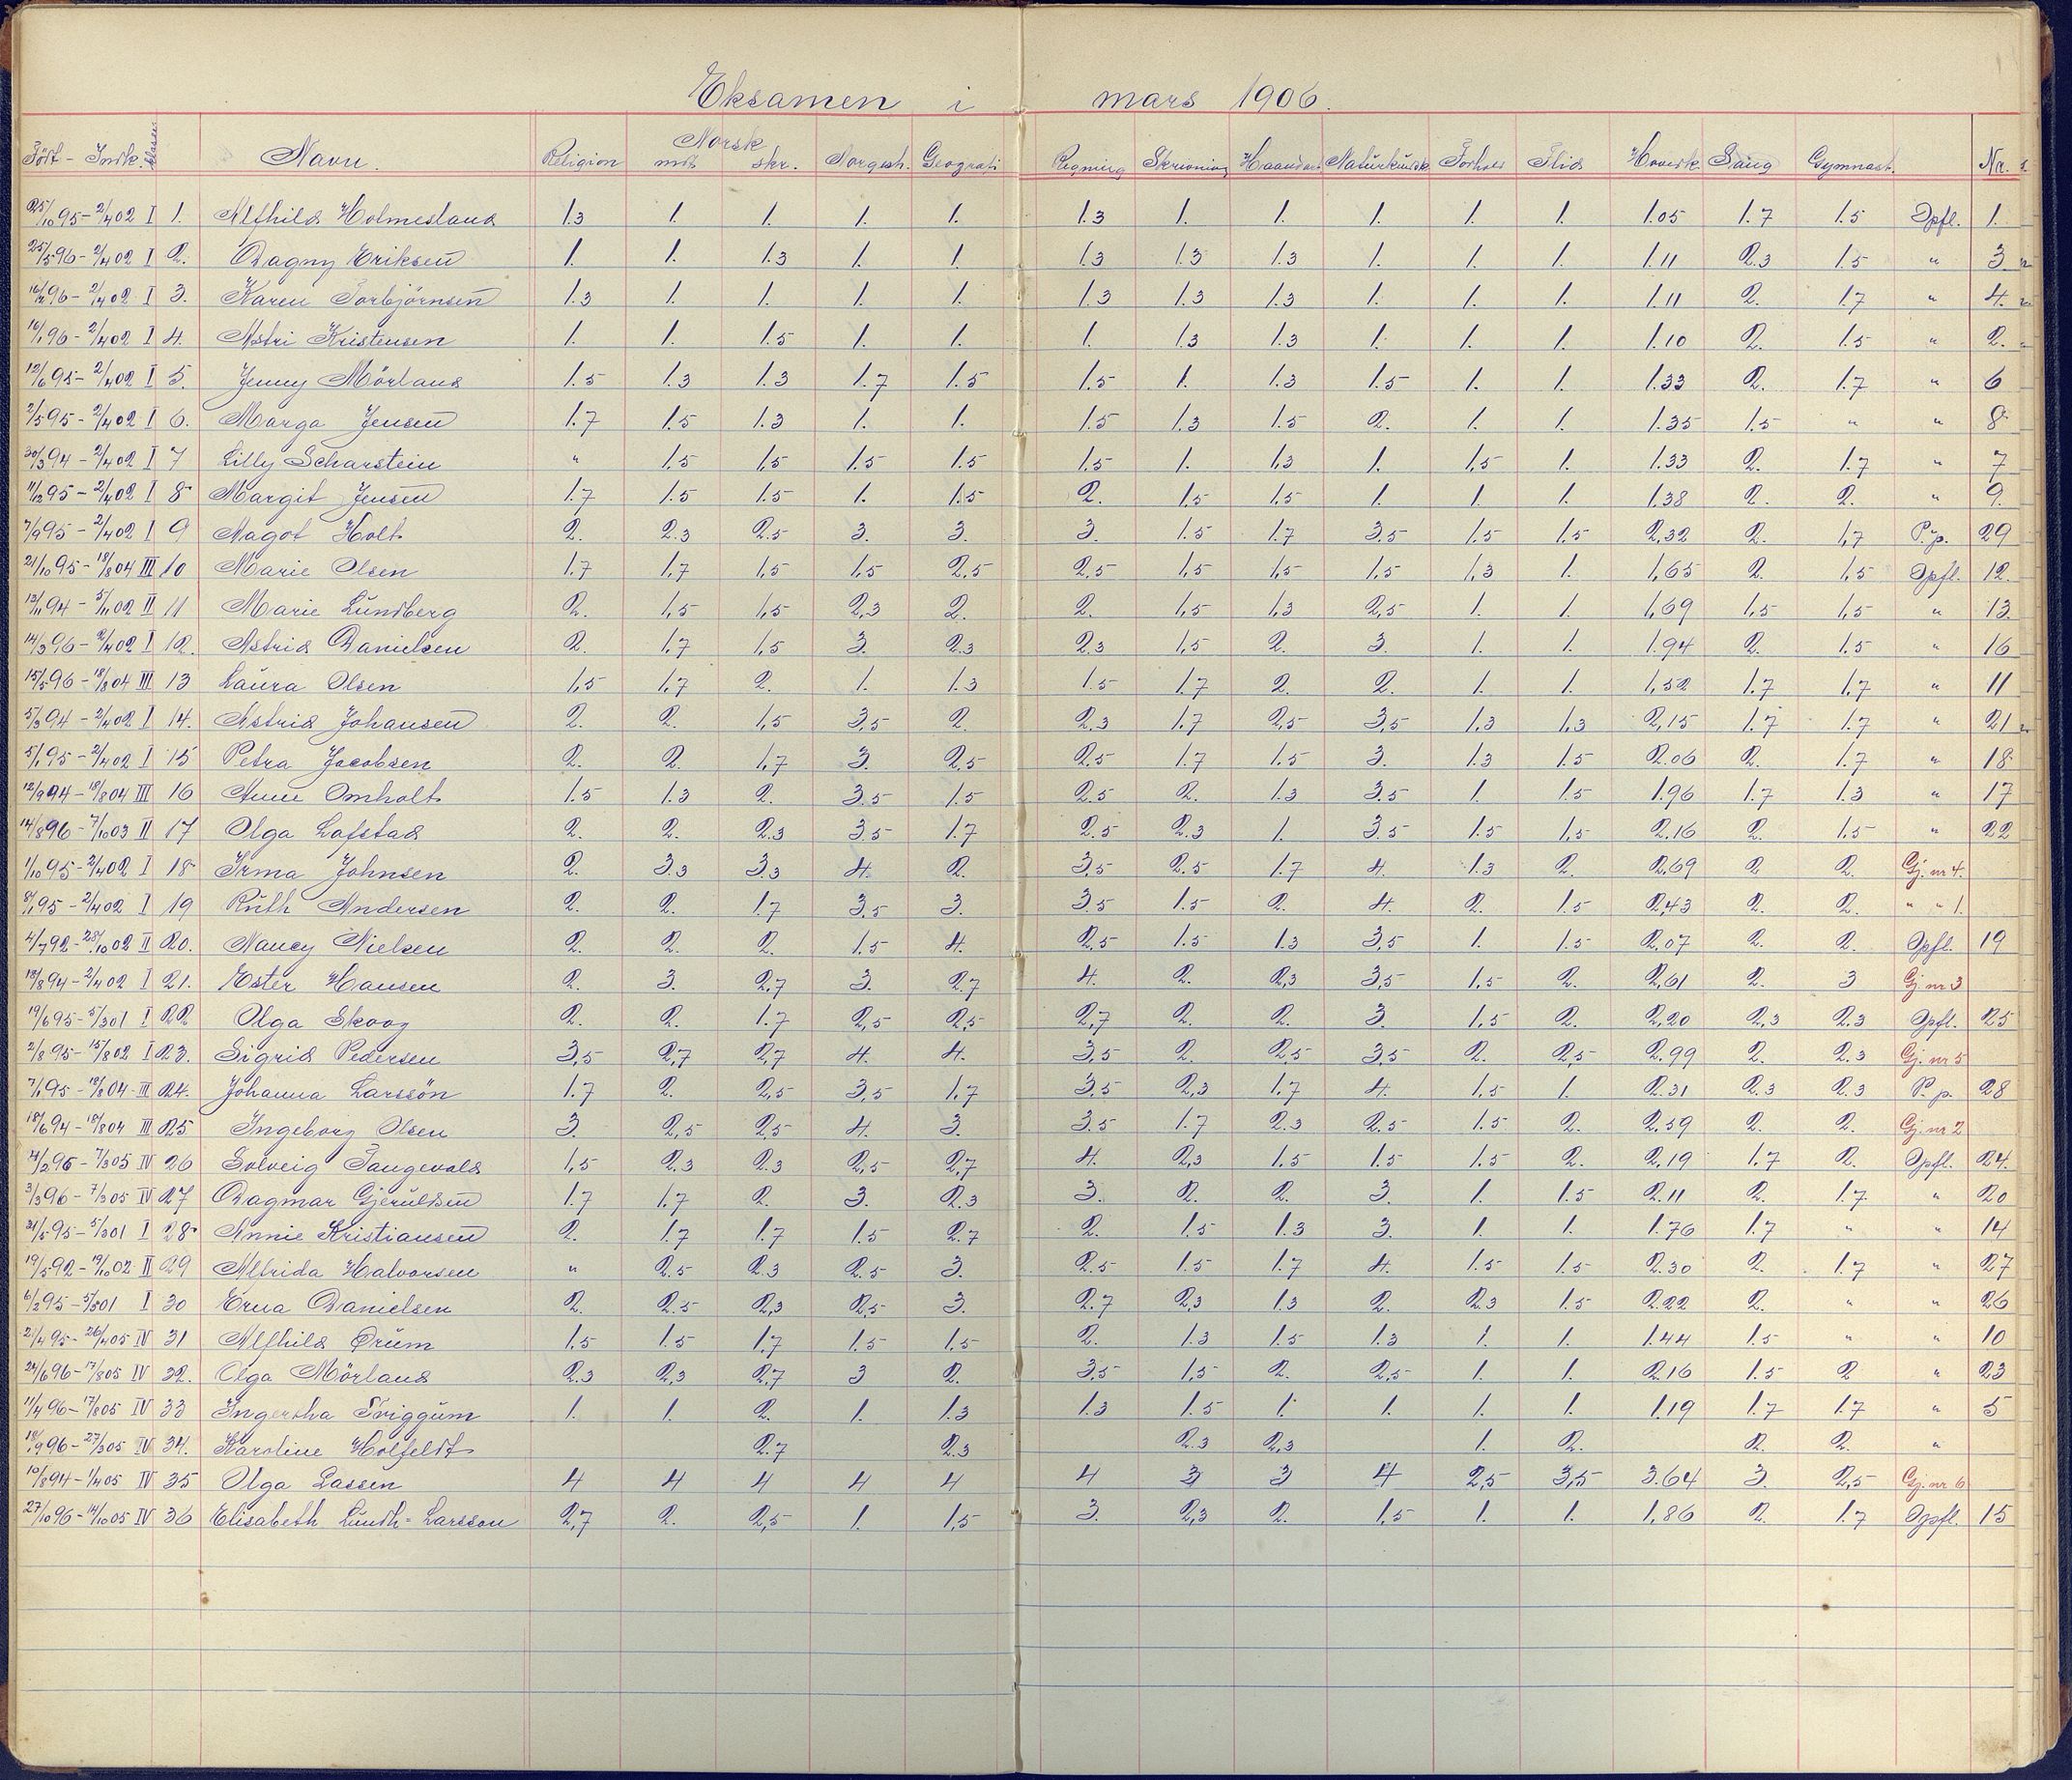 Eksamen i mars 1906.
Födt - Indk. klasse Navn. Religion Norsk mdt. skr. Norgesh. Geografi Regning Skrivning Haandarb. Naturkundsk. Forhold Flid Hovedk. Sang Gymnast. Nr.
25/10 95 - 2/4 02 I 1. Alfhild Holmesland 1.3 1. 1. 1. 1. 1.3 1. 1. 1. 1. 1. 1.05 1.7 1.5 Opfl. 1.
25/5 96 - 2/4 02 I 2. Dagny Eriksen 1. 1. 1.3 1. 1. 1.3 1.3 1.3 1. 1. 1. 1.11 2.3 1.5 " 3.
16/2 96 - 2/4 02 I 3. Karen Torbjörnsen 1.3 1. 1. 1. 1. 1.3 1.3 1.3 1. 1. 1. 1.11 2. 1.7 " 4.
16/1 96 - 2/4 02 I 4. Astri Kristensen 1. 1. 1.5 1. 1. 1. 1.3 1.3 1. 1. 1. 1.10 2. 1.5 " 2.
12/6 95 - 2/4 02 I 5. Jenny Mörland 1.5 1.3 1.3 1.7 1.5 1.5 1. 1.3 1.5 1. 1. 1.33 2. 1.7 " 6
2/5 95 - 2/4 02 I 6. Marga Jensen 1.7 1.5 1.3 1. 1. 1.5 1.3 1.5 2. 1. 1. 1.35 1.5 " " 8
30/3 94 - 2/4 02 I 7 Lilly Scharstein " 1.5 1.5 1.5 1.5 1.5 1. 1.3 1. 1.5 1. 1.33 2. 1.7 " 7
11/12 95 - 2/4 02 I 8 Margit Jensen 1.7 1.5 1.5 1. 1.5 2. 1.5 1.5 1. 1. 1. 1.38 2. 2. " 9.
7/9 95 - 2/4 02 I 9 Magot Holt 2. 2.3 2.5 3. 3. 3. 1.5 1.7 3.5 1.5 1.5 2.32 2. 1.7 P. p. 29
21/10 95 - 18/8 04 III 10 Marie Olsen 1.7 1.7 1.5 1.5 2.5 2.5 1.5 1.5 1.5 1.3 1. 1.65 2. 1.5 Opfl. 12.
13/11 94 - 5/11 02 II 11 Marie Lundberg 2. 1.5 1.5 2.3 2. 2. 1.5 1.3 2.5 1. 1. 1.69 1.5 1.5 " 13.
14/3 96 - 2/4 02 I 12. Astrid Danielsen 2. 1.7 1.5 3. 2.3 2.3 1.5 2. 3. 1. 1. 1.94 2. 1.5 " 16
15/5 96 - 18/8 04 III 13 Laura Olsen 1.5 1.7 2. 1. 1.3 1.5 1.7 2. 2. 1. 1. 1.52 1.7 1.7 " 11
5/3 94 - 2/4 02 I 14. Astrid Johansen 2. 2. 1.5 3.5 2. 2.3 1.7 2.5 3.5 1.3 1.3 2.15 1.7 1.7 " 21
5/1 95 - 2/4 02 I 15 Petra Jacobsen 2. 2. 1.7 3. 2.5 2.5 1.7 1.5 3. 1.3 1.5 2.06 2. 1.7 " 18
12/9 94 - 18/8 04 III 16 Anne Omholt 1.5 1.3 2. 3.5 1.5 2.5 2. 1.3 3.5 1. 1.5 1.96 1.7 1.3 " 17
14/8 96 - 7/10 03 II 17 Olga Lafstad 2. 2. 2.3 3.5 1.7 2.5 2.3 1. 3.5 1.5 1.5 2.16 2. 1.5 " 22
1/10 95 - 2/4 02 I 18 Irma Johnsen 2. 3.3 3.3 4. 2. 3.5 2.5 1.7 4. 1.3 2. 2.69 2. 2. Gj. nr 4.
8/1 95 - 2/4 02 I 19 Ruth Andersen 2. 2. 1.7 3.5 3. 3.5 1.5 2. 4. 2. 1.5 2.43 2. 2. " " 1.
4/7 92 - 28/10 02 II 20. Nancy Nielsen 2. 2. 2. 1.5 4. 2.5 1.5 1.3 3.5 1. 1.5 2.07 2. 2. Opfl. 19
18/8 94 - 2/4 02 I 21. Ester Hansen 2. 3. 2.7 3. 2.7 4. 2. 2.3 3.5 1.5 2. 2.61 2. 3 Gj nr 3
19/6 95 - 5/3 01 I 22 Olga Skoog 2. 2. 1.7 2.5 2.5 2.7 2. 2. 3. 1.5 2. 2.20 2.3 2.3 Opfl. 25
2/8 95 - 15/8 02 I 23. Sigrid Pedersen 3.5 2.7 2.7 4. 4. 3.5 2. 2.5 3.5 2. 2.5 2.99 2. 2.3 Gj. nr 5
7/1 95 - 18/8 04 III 24. Johanna Larssön 1.7 2. 2.5 3.5 1.7 3.5 2.3 1.7 4. 1.5 1. 2.31 2.3 2.3 P. p. 28
18/6 94 - 18/8 04 III 25 Ingeborg Olsen 3. 2.5 2.5 4. 3. 3.5 1.7 2.3 2.5 1.5 2. 2.59 2. 2. Gj. nr 2
4/2 96 - 7/3 05 IV 26 Solveig Tangevald 1.5 2.3 2.3 2.5 2.7 4. 2.3 1.5 1.5 1.5 2. 2.19 1.7 2. Opfl. 24.
3/3 96 - 7/3 05 IV 27 Dagmar Gjerulfsen 1.7 1.7 2. 3. 2.3 3. 2. 2. 3. 1. 1.5 2.11 2. 1.7 " 20
21/5 95 - 5/3 01 I 28. Annie Kristiansen 2. 1.7 1.7 1.5 2.7 2. 1.5 1.3 3. 1. 1. 1.76 1.7 " " 14
19/5 92 - 19/10 02 II 29 Alfrida Halvorsen " 2.5 2.3 2.5 3. 2.5 1.5 1.7 4. 1.5 1.5 2.30 2. 1.7 " 27
6/2 95 - 5/3 01 I 30 Erna Danielsen 2. 2.5 2.3 2.5 3. 2.7 2.3 1.3 2. 2.3 1.5 2.22 2. " " 26
21/4 95 - 26/4 05 IV 31 Alfhild Örum 1.5 1.5 1.7 1.5 1.5 2. 1.3 1.5 1.3 1. 1. 1.44 1.5 " " 10
24/6 96 - 17/8 05 IV 32. Olga Mörland 2.3 2.3 2.7 3 2. 3.5 1.5 2. 2.5 1. 1. 2.16 1.5 2 " 23
11/4 96 - 17/8 05 IV 33 Ingertha Triggum 1. 1. 2. 1. 1.3 1.3 1.5 1. 1. 1. 1. 1.19 1.7 1.7 " 5
18/9 96 - 27/3 05 IV 34. Karoline Holfeldt 2.7 2.3 2.3 2.3 1. 2. 2. 2. "
10/8 94 - 1/4 05 IV 35 Olga Lassen 4 4 4 4 4 4 3 3 4 2.5 3.5 3.64 3. 2.5 Gj. nr 6
27/10 96 - 14/10 05 IV 36 Elisabeth Lundh-Larsson 2.7 2. 2.5 1. 1.5 3. 2.3 2. 1.5 1. 1. 1.86 2. 1.7 Opfl. 15